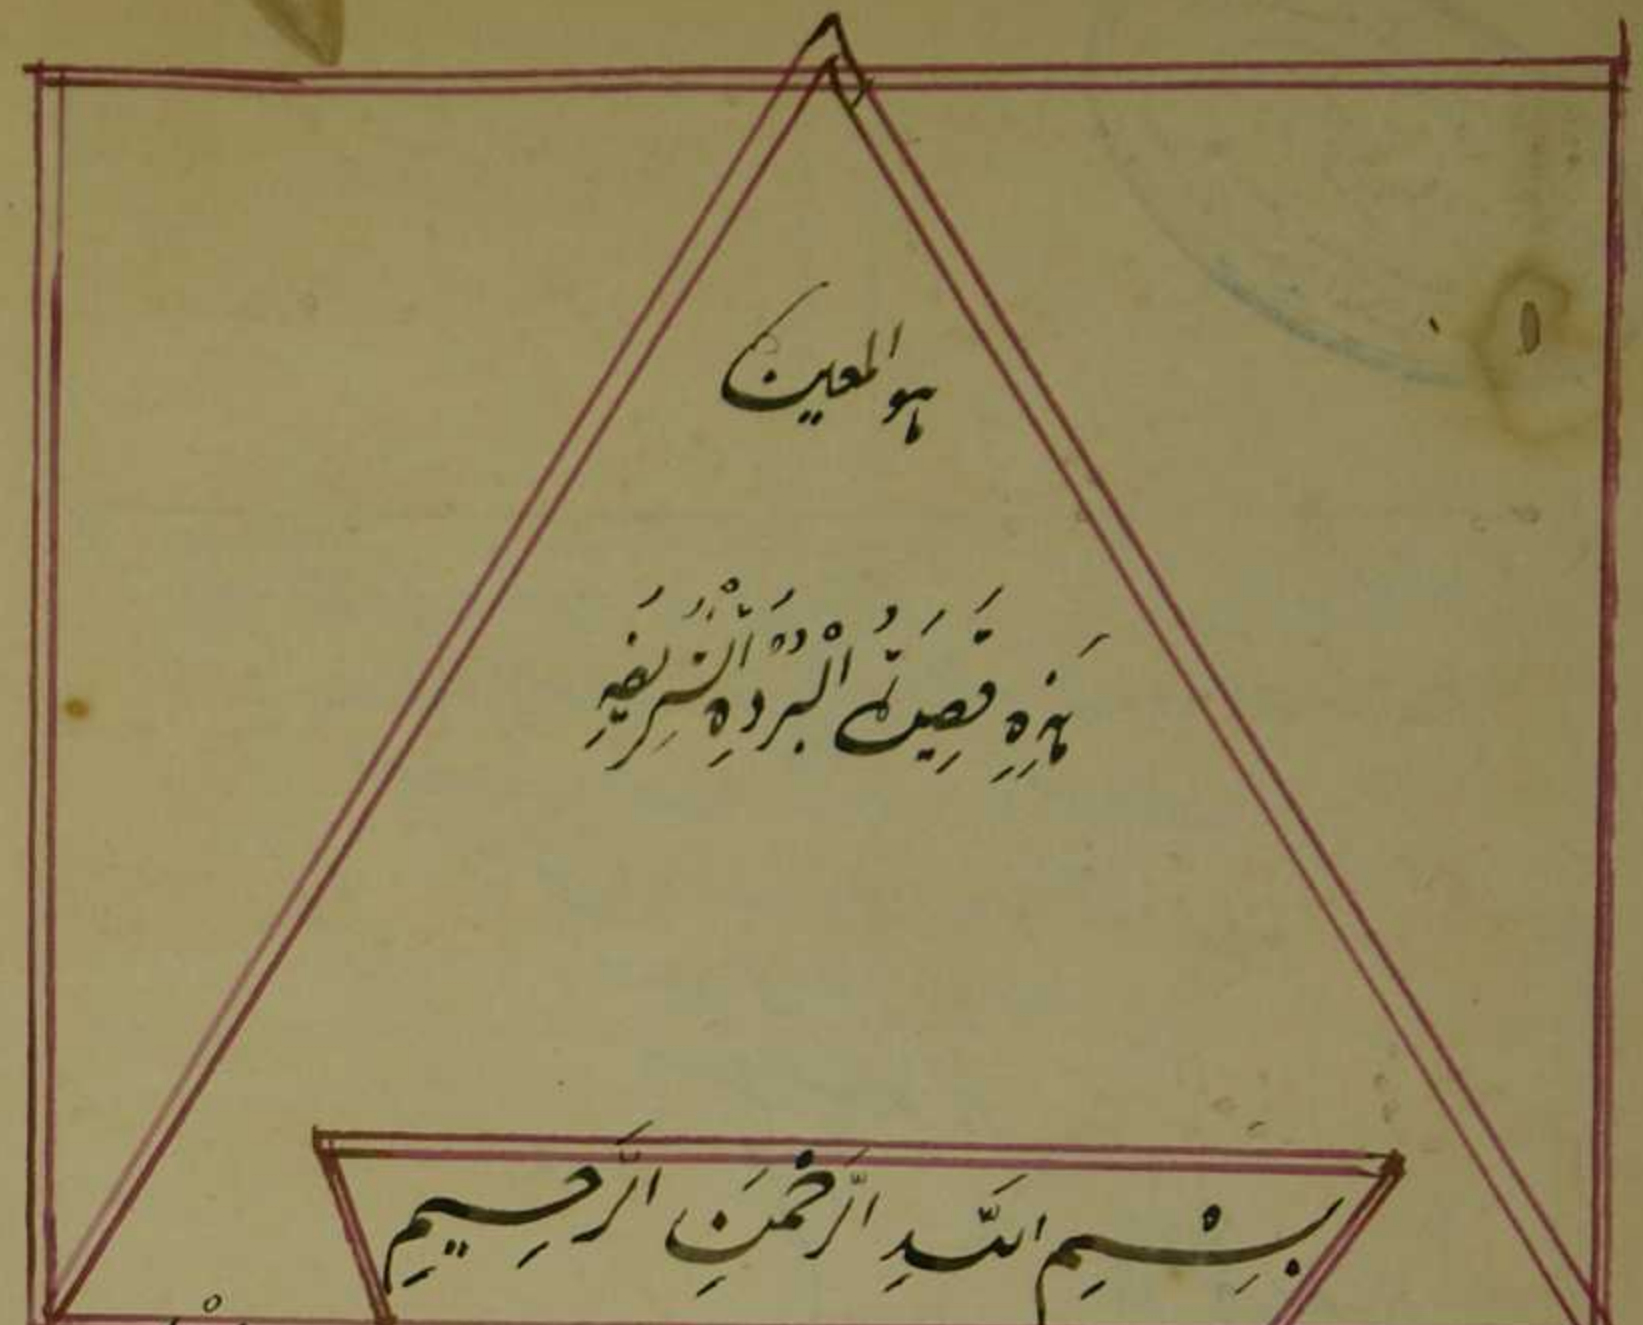 هو المعین
هَذِهِ قَصِیدَةُ الْبُرْدَةِ الشَّرِیْفَةِ
بِسْمِ اللَّهِ الرَّحْمَنِ الرَّحِیمِ